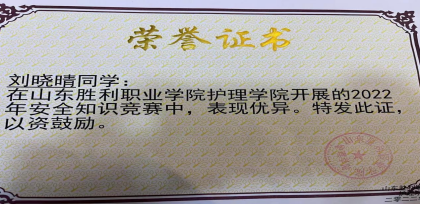 荣誉证书
刘晓晴同学：
在山东胜利职业学院护理学院开展的2022
年安全知识竞赛中，表现优异。特发此证，
以资鼓励。